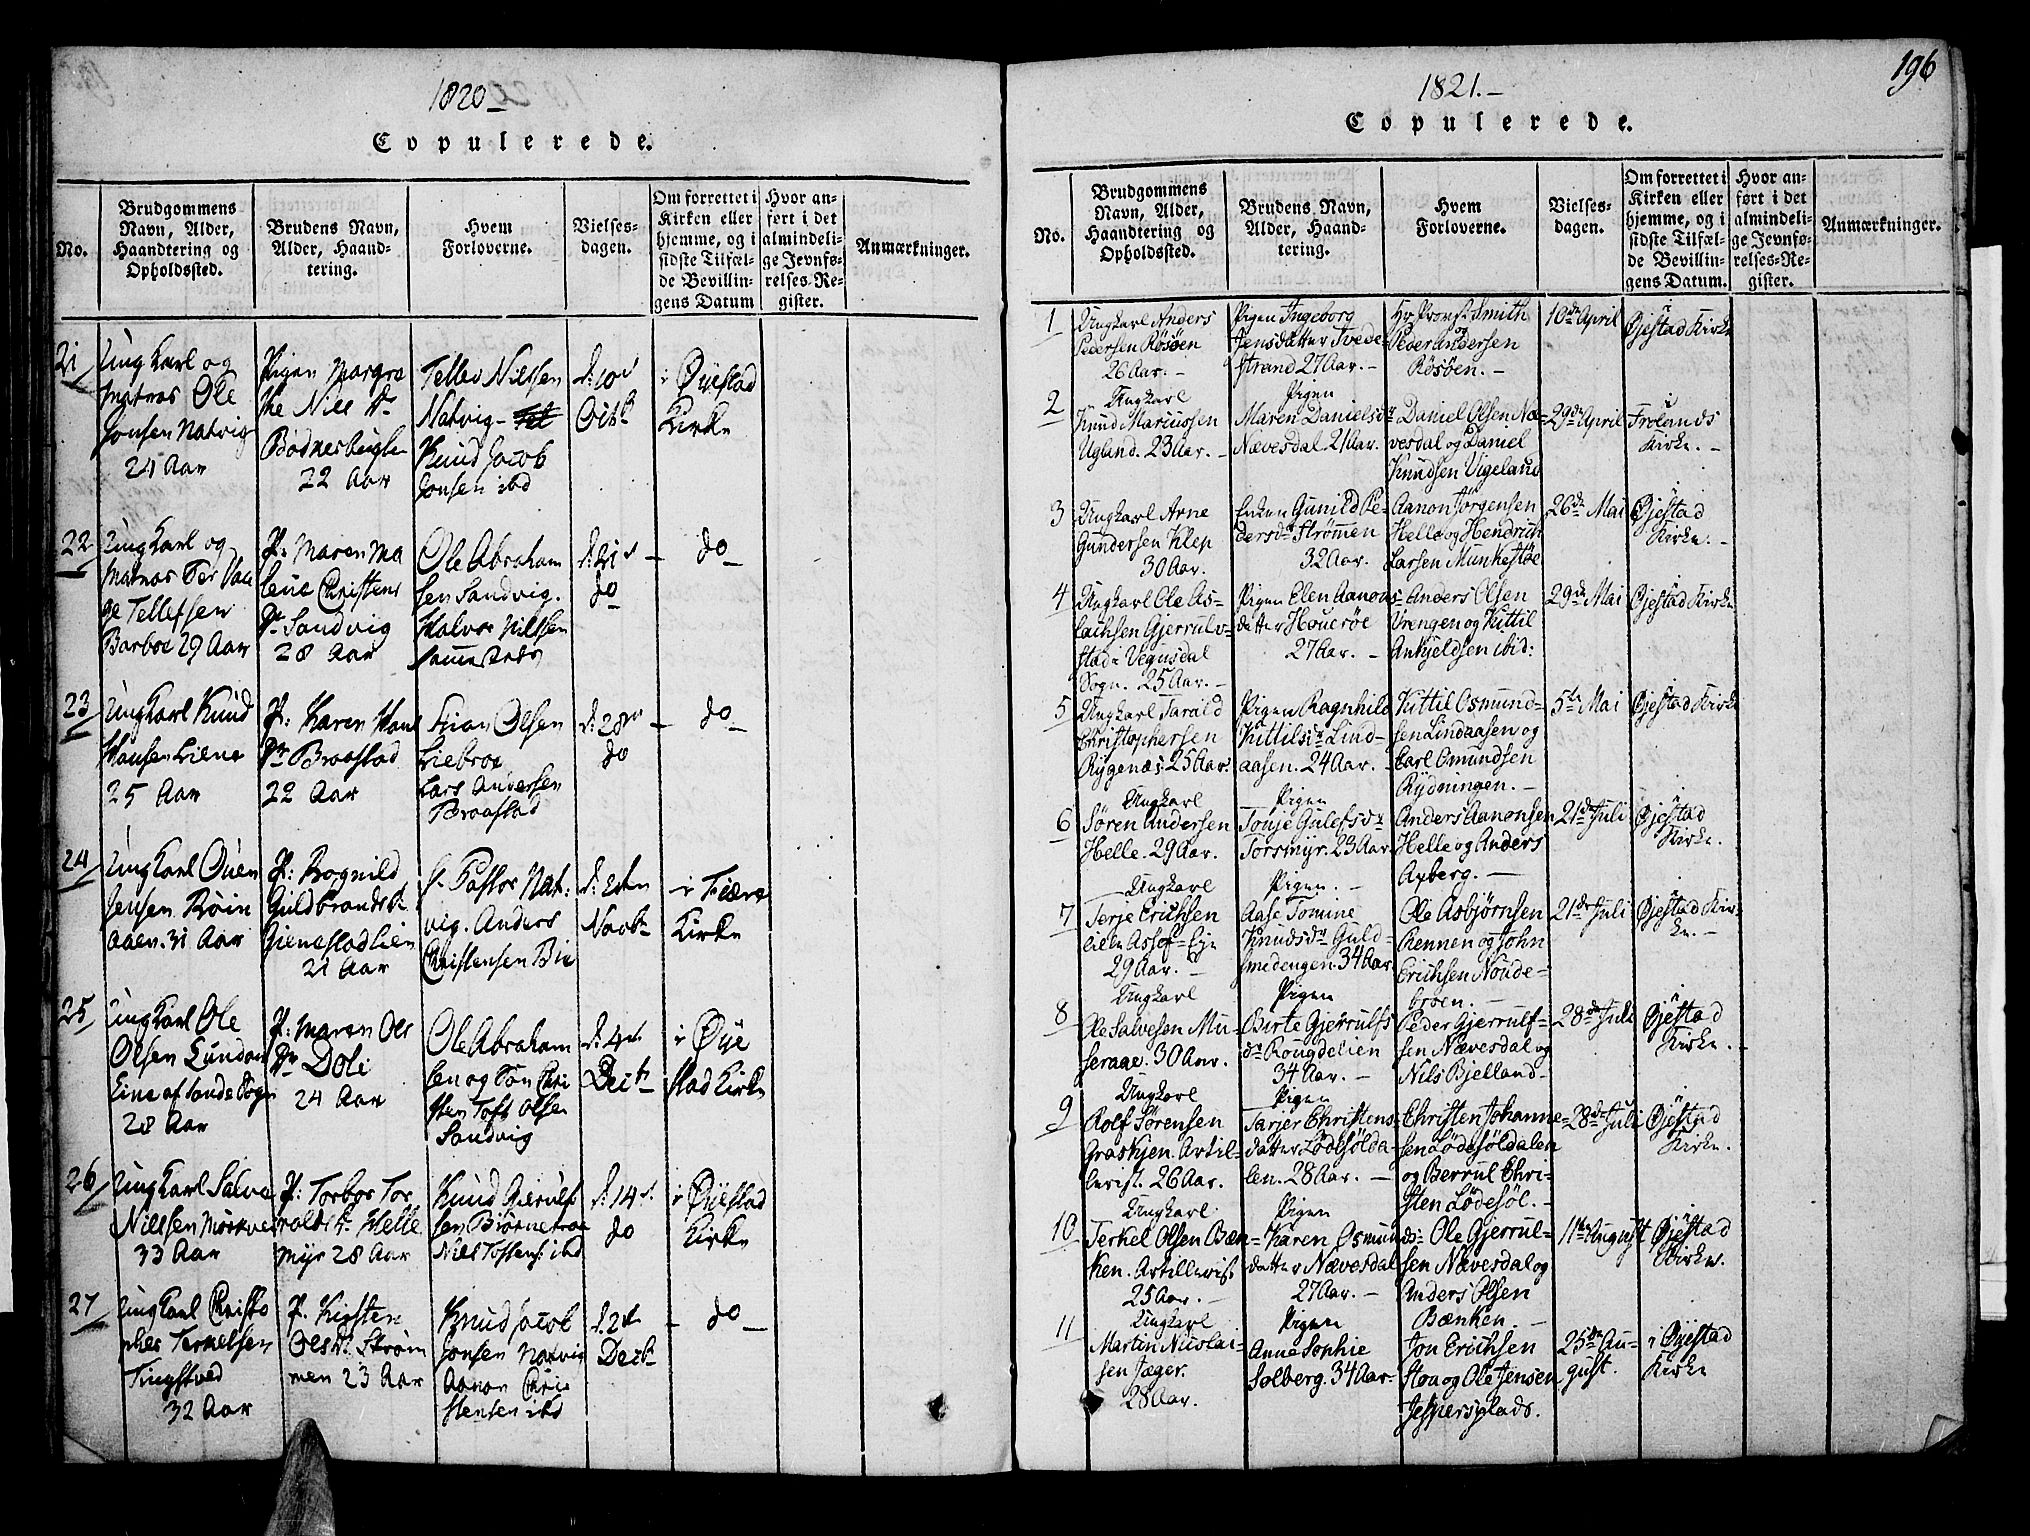 1820
Copulerede.
No.
Brudgommens
Navn, Alder,
Haandtering og
Opholdssted.
Brudens Navn,
Alder, Haand-
tering.
Hvem
Forloverne.
Vielses-
dagen.
Om forrettet i
Kirken eller
hjemme, og i
sidste Tilfæl-
de Bevillin-
gens Datum
Hvor an-
ført i det
almindeli-
ge Jevnfø-
relses-Re-
gister.
Anmærkninger.
21
Ungkarl og
matros Ole
Jonsen Natvig
24 Aar
Pigen Margre
the Niels Dr
22 Aar
Tellev Nilssen
Natvig
Knud Jacob
Jonsen ibd
d: 10d
Octb
i Øyestad
Kirke
22
Ungkarl og
matros Ter Vaa
ge Tellefsen
Barboe 29 Aar
P: Maren Ma
lene Christens
Dr Sandvig
28 Aar
Ole Abraham
sen Sandvig.
Halvor Nilssen
d: 21d
do
do
23
Ungkarl Knud
Hansen Liene
25 Aar
P: Karen Hans
Dr Braastad
22 Aar
Olsen
Liebroe
Lars Andersen
Braastad
d: 28de
do
do
24
Ungkarl Ouen
Jensen Røin
aaen. 31 Aar
P: Rognild
Guldbrands Dr
21 Aar
Pastor Nat:
vig. Anders
Christensen Bie
Novbr
i Fiære
Kirke
25
Ungkarl Ole
Olsen Lundan
28 Aar
P: Maren Ols
Dr Dole
24 Aar
Ole Abraham
sen og Søn Chri
sten Toft Olsen
Sandvig
d: 4de
Decbr
i Øye
stad Kirke
26
Ungkarl Salve
Nielsen
33 Aar
P: Torbor Tor
Helle
myr 28 Aar
Knud Gierulf
sen
Niels ibd
d: 14d
do
i Øyestad
Kirke
27
Ungkarl Christo
pher Terkelsen
Tingstved
32 Aar
P. Kirsten
Ols Dr. Strøm
men 23 Aar
Knud Jacob
Jonsen Natvig
Aanon Chri
stensen ibd
Decbr
do
196
1821.
Copulerede.
No.
Brudgommens
Navn, Alder,
Haandtering og
Opholdssted.
Brudens Navn,
Alder, Haand-
tering.
Hvem
Forloverne.
Vielses-
dagen.
Om forrettet i
Kirken eller
hjemme, og i
sidste Tilfæl-
de Bevillin-
gens Datum.
Hvor an-
ført i det
almindeli-
ge Jevnfø-
relses-Re-
gister.
Anmærkninger.
1
Ungkarl Anders
Pedersen Røsøen
26 Aar.
Pigen Ingeborg
Jensdatter Tvede-
strand 27 Aar.
Hr Provst Smith
og
Peder Andersen
Røsøen.
10de April
Øjestad Kirke
2
Ungkarl
Knud Mariussen
Ugland. 23 Aar.
Pigen
Maren Danielsdr
Nævesdal. 21 Aar.
Daniel Olsen Næ-
vesdal og Daniel
Knudsen Vigeland
29de April
i
Frolands
Kirke.
3
Ungkarl Arne
Gundersen Klep
30 Aar.
Enken Gunild Pe-
dersdr Strømen
32 Aar.
Aanon Jørgensen
Helle og Hendrich
Larsen Munkestøe
26de Mai
i
Øjestad
Kirke.
4
Ungkarl Ole As-
lachsen Gjerrulv-
stad i Vegusdal
Sogn. 25 Aar.
Pigen Elen Aanons-
datter Houerøe
27 Aar.
Anders Olsen
Vrengen og Kittil
Ankjeldsen ibid:
29de Mai
i
Øjestad Kirke
5
Ungkarl Tarald
Christophersen
Rygenæs. 25 Aar.
Pigen Ragnhild
Kittilsdr Lind-
aasen. 24 Aar.
Kittil Osmund-
sen Lindaasen og
Carl Osmundsen
Rydningen.
5te Mai
i
Øjestad Kirke
6
Ungkarl
Søren Andersen
Helle. 29 Aar.
Pigen
Tonje Gulefsdr
Torsmyr. 23 Aar
Anders Aanonsen
Helle og Anders
Axberg.
21de Juli
i
Øjestad
Kirke.
7
Ungkarl
Terje Erichsen
29 Aar.
Pigen.
Aase Tomine
Knudsdr Guld-
smedengen. 34 Aar.
Ole Asbjørnsen
Rennen og John
Erichsen Noude-
broen.
21de Juli
i
Øjestad Kir-
ke.
8
Ungkarl
Ole Salvesen Mu-
seraae. 30 Aar.
Pigen
Birte Gjerrulfs
dr Rougdelien
34 Aar.
Peder Gjerrulf-
sen Nævesdal og
Nils Bjelland
28de Juli
i
Øjestad
Kirke.
9
Ungkarl
Rolf Sørensen
Graskjen. Artil-
lerist. 26 Aar.
Pigen
Tarjer Christens-
datter Lødesølda-
len. 28 Aar.
Christen Johanne-
sen Lødesøldalen
og Berrul Chri-
sten Lødesøl.
28de Juli
i
Øjestad
Kirke.
10
Ungkarl
Terkel Olsen Bæn-
ken. Artillerist
25 Aar.
Pigen
Karen Osmunds-
datter Nævesdal
27 Aar.
Ole Gjerrul-
sen Nævesdal og
Anders Olsen
Bænken.
11te August
i
Øjestad
Kirke.
11
Ungkarl
Martin Nicolai-
sen Jæger.
28 Aar.
Pigen
Anne Sophie
Solberg. 34 Aar.
Jon Erichsen
Stoa og Ole Jensen
Jespersplads.
25de Au-
gust.
i Øjestad
Kirke